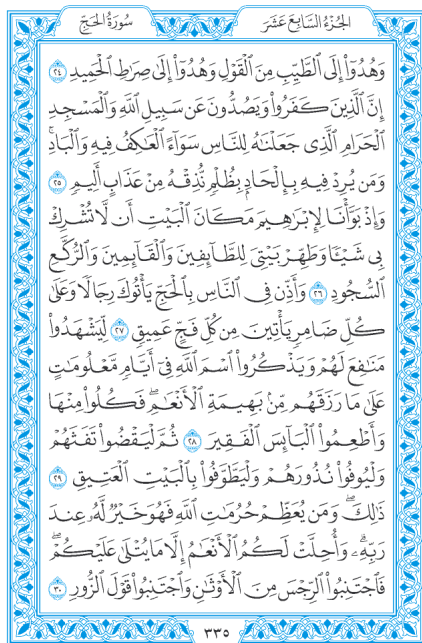 الجُزْءُ السَّابِعَ عَشَرَ سُورَةُ الحَجِّ
وَهُدُوٓاْ إِلَى ٱلطَّيِّبِ مِنَ ٱلۡقَوۡلِ وَهُدُوٓاْ إِلَىٰ صِرَٰطِ ٱلۡحَمِيدِ ٢٤
إِنَّ ٱلَّذِينَ كَفَرُواْ وَيَصُدُّونَ عَن سَبِيلِ ٱللَّهِ وَٱلۡمَسۡجِدِ
ٱلۡحَرَامِ ٱلَّذِي جَعَلۡنَٰهُ لِلنَّاسِ سَوَآءً ٱلۡعَٰكِفُ فِيهِ وَٱلۡبَادِۚ
وَمَن يُرِدۡ فِيهِ بِإِلۡحَادِۭ بِظُلۡمٖ نُّذِقۡهُ مِنۡ عَذَابٍ أَلِيمٖ ٢٥
وَإِذۡ بَوَّأۡنَا لِإِبۡرَٰهِيمَ مَكَانَ ٱلۡبَيۡتِ أَن لَّا تُشۡرِكۡ
بِي شَيۡـٔٗا وَطَهِّرۡ بَيۡتِيَ لِلطَّآئِفِينَ وَٱلۡقَآئِمِينَ وَٱلرُّكَّعِ
ٱلسُّجُودِ ٢٦ وَأَذِّن فِي ٱلنَّاسِ بِٱلۡحَجِّ يَأۡتُوكَ رِجَالٗا وَعَلَىٰ
كُلِّ ضَامِرٖ يَأۡتِينَ مِن كُلِّ فَجٍّ عَمِيقٖ ٢٧ لِّيَشۡهَدُواْ
مَنَٰفِعَ لَهُمۡ وَيَذۡكُرُواْ ٱسۡمَ ٱللَّهِ فِيٓ أَيَّامٖ مَّعۡلُومَٰتٍ
عَلَىٰ مَا رَزَقَهُم مِّنۢ بَهِيمَةِ ٱلۡأَنۡعَٰمِۖ فَكُلُواْ مِنۡهَا
وَأَطۡعِمُواْ ٱلۡبَآئِسَ ٱلۡفَقِيرَ ٢٨ ثُمَّ لۡيَقۡضُواْ تَفَثَهُمۡ
وَلۡيُوفُواْ نُذُورَهُمۡ وَلۡيَطَّوَّفُواْ بِٱلۡبَيۡتِ ٱلۡعَتِيقِ ٢٩
ذَٰلِكَۖ وَمَن يُعَظِّمۡ حُرُمَٰتِ ٱللَّهِ فَهُوَ خَيۡرٞ لَّهُۥ عِندَ
رَبِّهِۦۗ وَأُحِلَّتۡ لَكُمُ ٱلۡأَنۡعَٰمُ إِلَّا مَا يُتۡلَىٰ عَلَيۡكُمۡۖ
فَٱجۡتَنِبُواْ ٱلرِّجۡسَ مِنَ ٱلۡأَوۡثَٰنِ وَٱجۡتَنِبُواْ قَوۡلَ ٱلزُّورِ ٣٠
٣٣٥